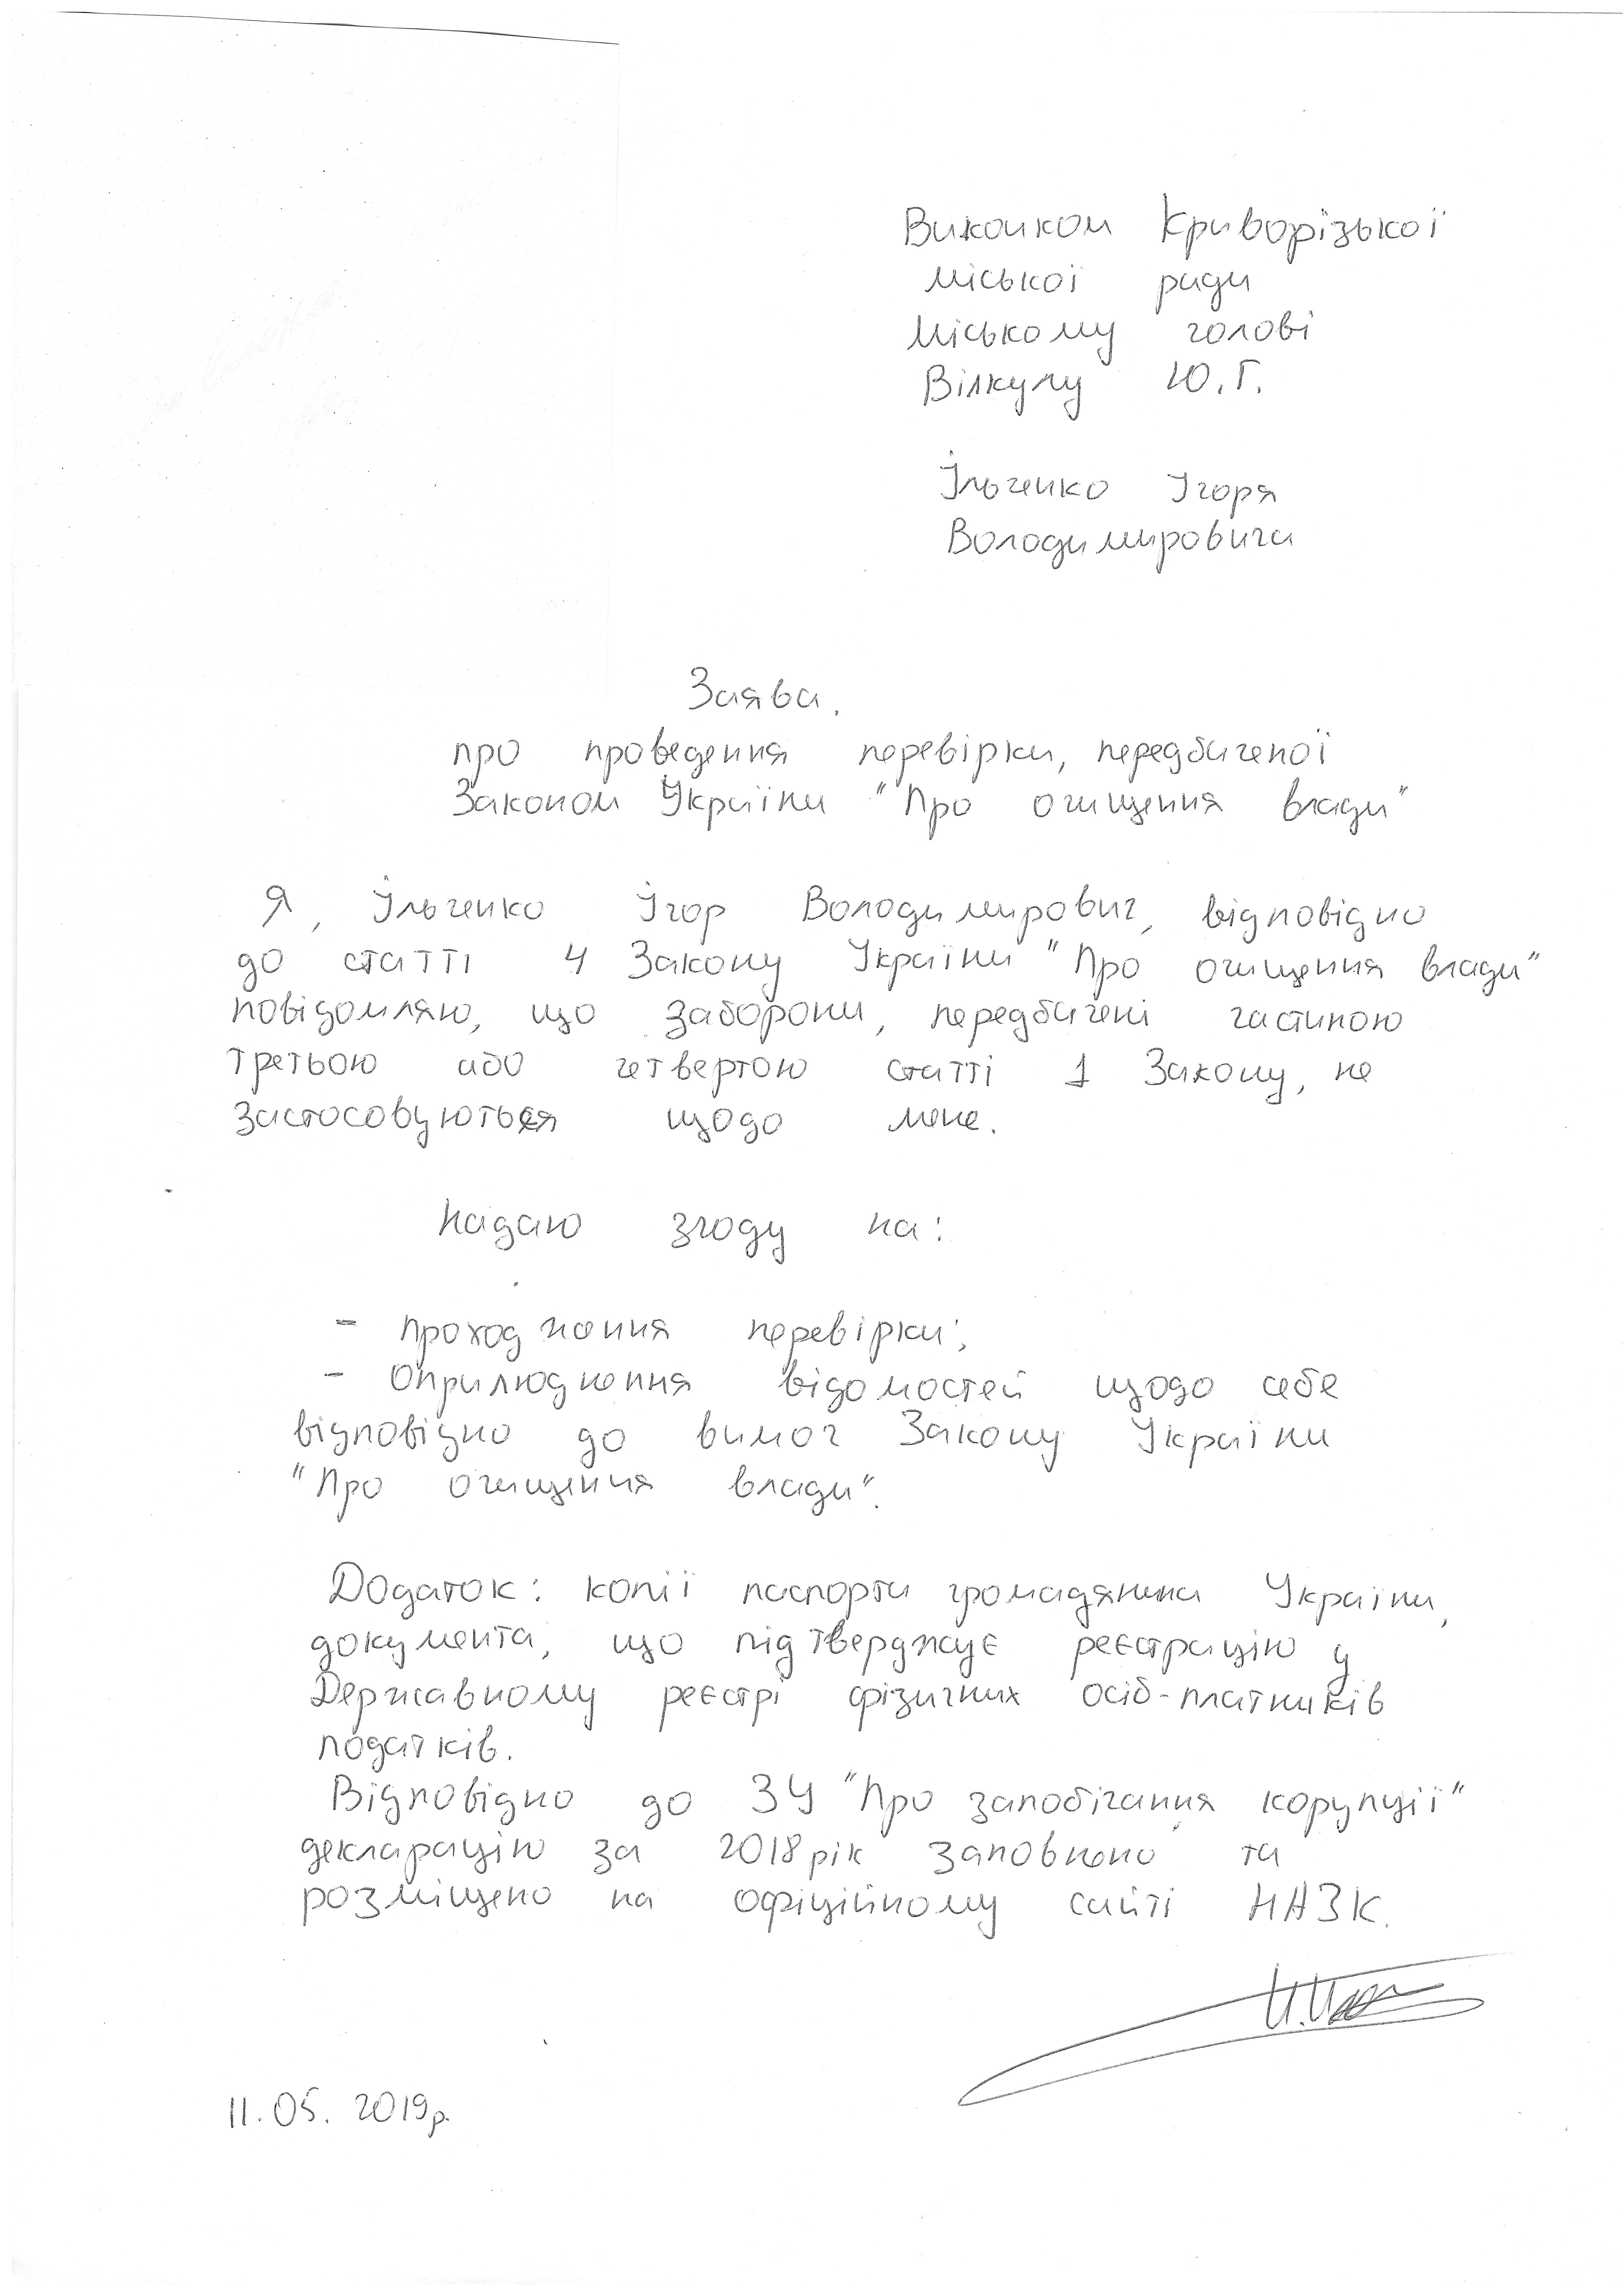 Виконком Криворізької
міської ради
Міському голові
Вілкулу Ю.Г.
Ільченко Ігоря
Володимировича
Заява.
про проведення перевірки, передбаченої
Законом України "Про очищення влади"
Я, Ільченко Ігор Володимирович, відповідно
до статті 4 Закону України "Про очищення влади"
повідомляю, що заборони, передбачені частиною
третьою або четвертою статті 1 Закону, не
застосовуються щодо мене.
Надаю згоду на:
- проходження перевірки;
- Оприлюднення відомостей щодо себе
відповідно до вимог Закону України
"Про очищення влади".
Додаток: копії паспорта громадянина України,
документа, що підтверджує реєстрацію у
Державному реєстрі фізичних осіб-платників
податків.
Відповідно до ЗУ "Про запобігання корупції"
декларацію за 2018 рік заповнено та
розміщено на офіційному сайті НАЗК.
11.05.2019р.